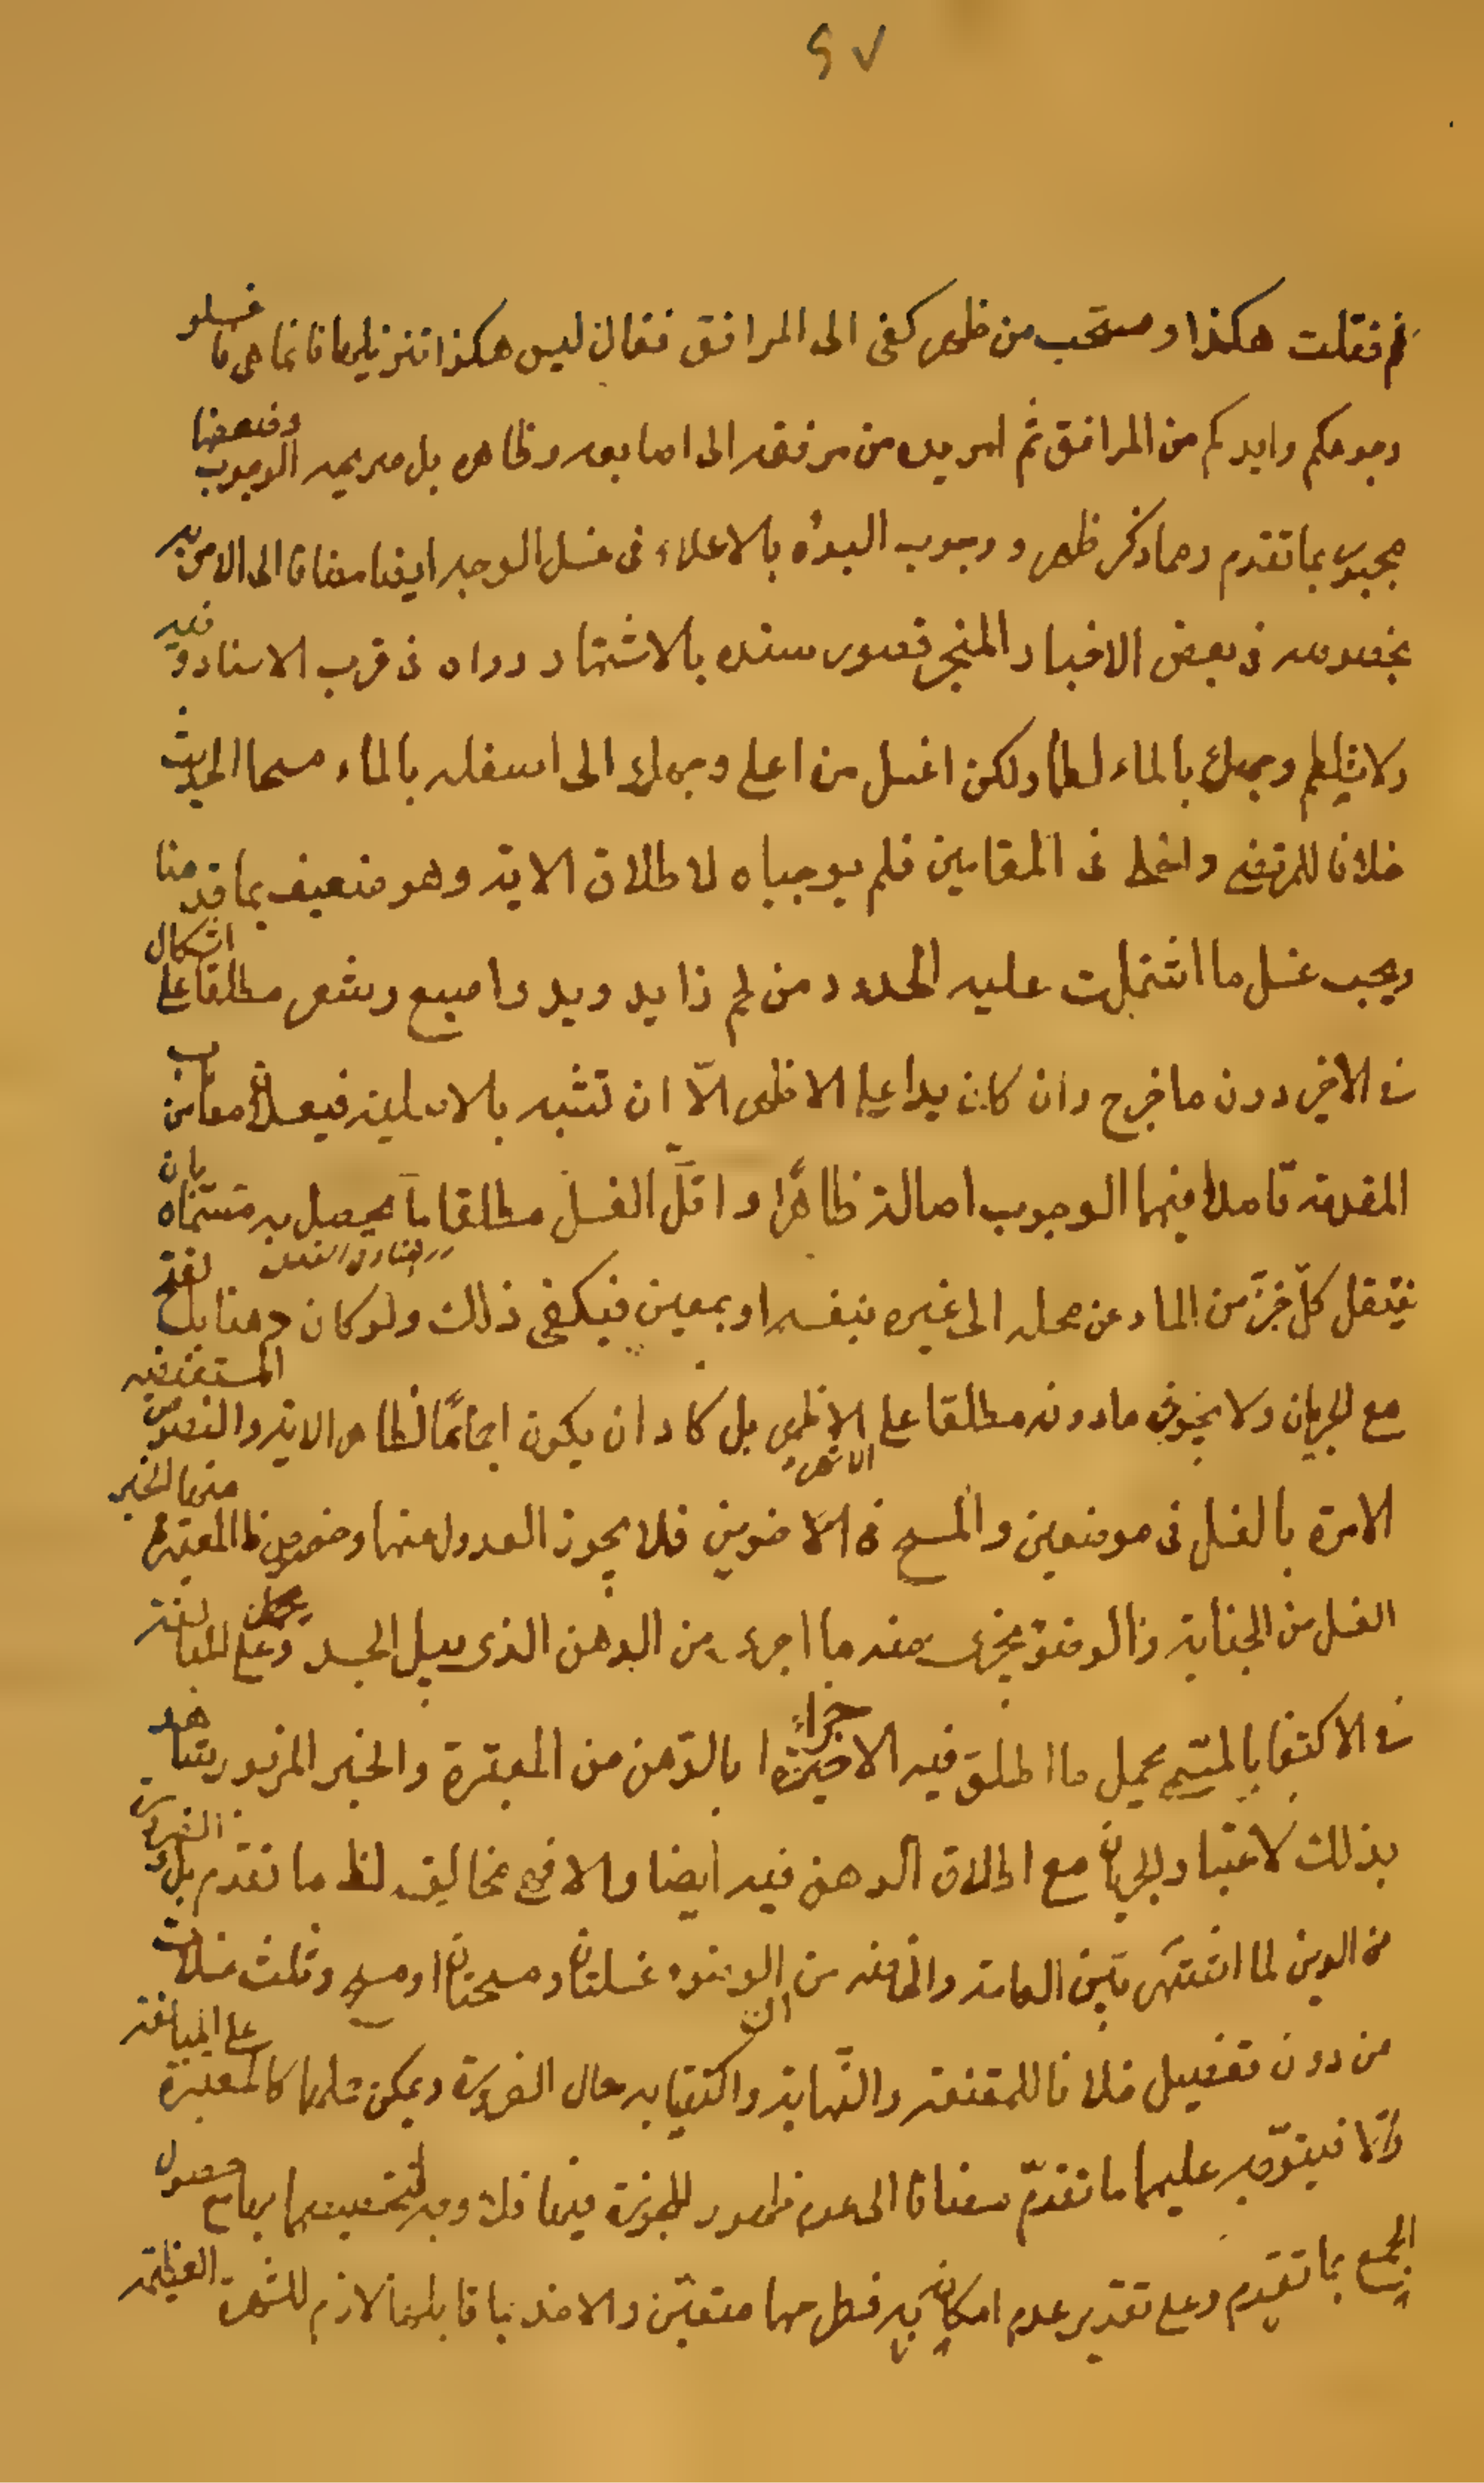 ٢٧
فقلت هكذا ومسحت من ظهر كفي الى المرافق فقال ليس هكذا تنزيلها فانما هي فاغسلوا
وجوهكم وايديكم من المرافق ثم امر يده من مرفقه الى اصابعه وظاهره بل صريحه الوجوب وضعفها
مجبور بما تقدم ومما ذكر ظهر وجوب البدئه بالاعلاء في غسل الوجه ايضا مضافا الى الامر به
بخصوصه في بعض الاخبار المنجبر قصور سنده بالاشتهار رواه في قرب الاسناد وفيه
ولا تلطم وجهك بالماء لطما ولكن اغسل من اعلى وجهك الى اسفله بالماء مسحا الحديث
خلافا للمرتضى والحلي في المقامين فلم يوجباه لاطلاق الاية وهو ضعيف بما قدمنا
ويجب غسل ما اشتملت عليه الحدود من لحم زايد ويد واصبع وشعر مطلقا على اشكال
في الاخير دون ما خرج وان كان يدا على الاظهر الا ان تشبه بالاصلية فيغسلان معا من باب
المقدمة تاصلا فيهما الوجوب اصالة ظاهرا واقل الغسل مطلقا ما يحصل به مسماه بان
ينتقل كل جزء من الماء عن محله الى غيره بنفسه او بمعين فيكفي ذلك ولو كان دهنا
مع الجريان ولا يجوز ما دونه مطلقا على الاظهر الاشهر بل كاد ان يكون اجماعا لظاهر الاية والنصوص المستفيضة
الامرة بالغسل في موضعين والمسح في الاخرين فلا يجوز العدول عنها وخصوص المعتبرة منها الخبر
الغسل من الجنابة والوضوء يجزى منه ما اجرى من الدهن الذي يبل الجسد وعلى المبالغة
في الاكتفا بالمسمى يحمل ما اطلق فيه الاجزاء بالدهن من المعتبرة والخبر المزبور شاهد
بذلك لاعتبار الجريان مع اطلاق الدهن فيه ايضا والا فهو مخالف لما تقدم بل الضرورة
من الدين لما اشتهر بين العامة والخاصة من ان الوضوء غسلتان ومسحتان او مسح وثلث غسلات
من دون تفصيل خلافا للمقنعة والنهاية واكتفيا به حال الضرورة ويمكن حملها كالمعتبرة على المبالغة
والا فيتوجه عليهما ما تقدم مضافا الى عدم ظهور المجوزة فيما ذكر وجه لتخصيصهما بها مع حصول
الجمع بما تقدم وعلى تقدير عدم امكانه به فطرحها متعين والاخذ بما قابلها لازم للشهرة العظيمة